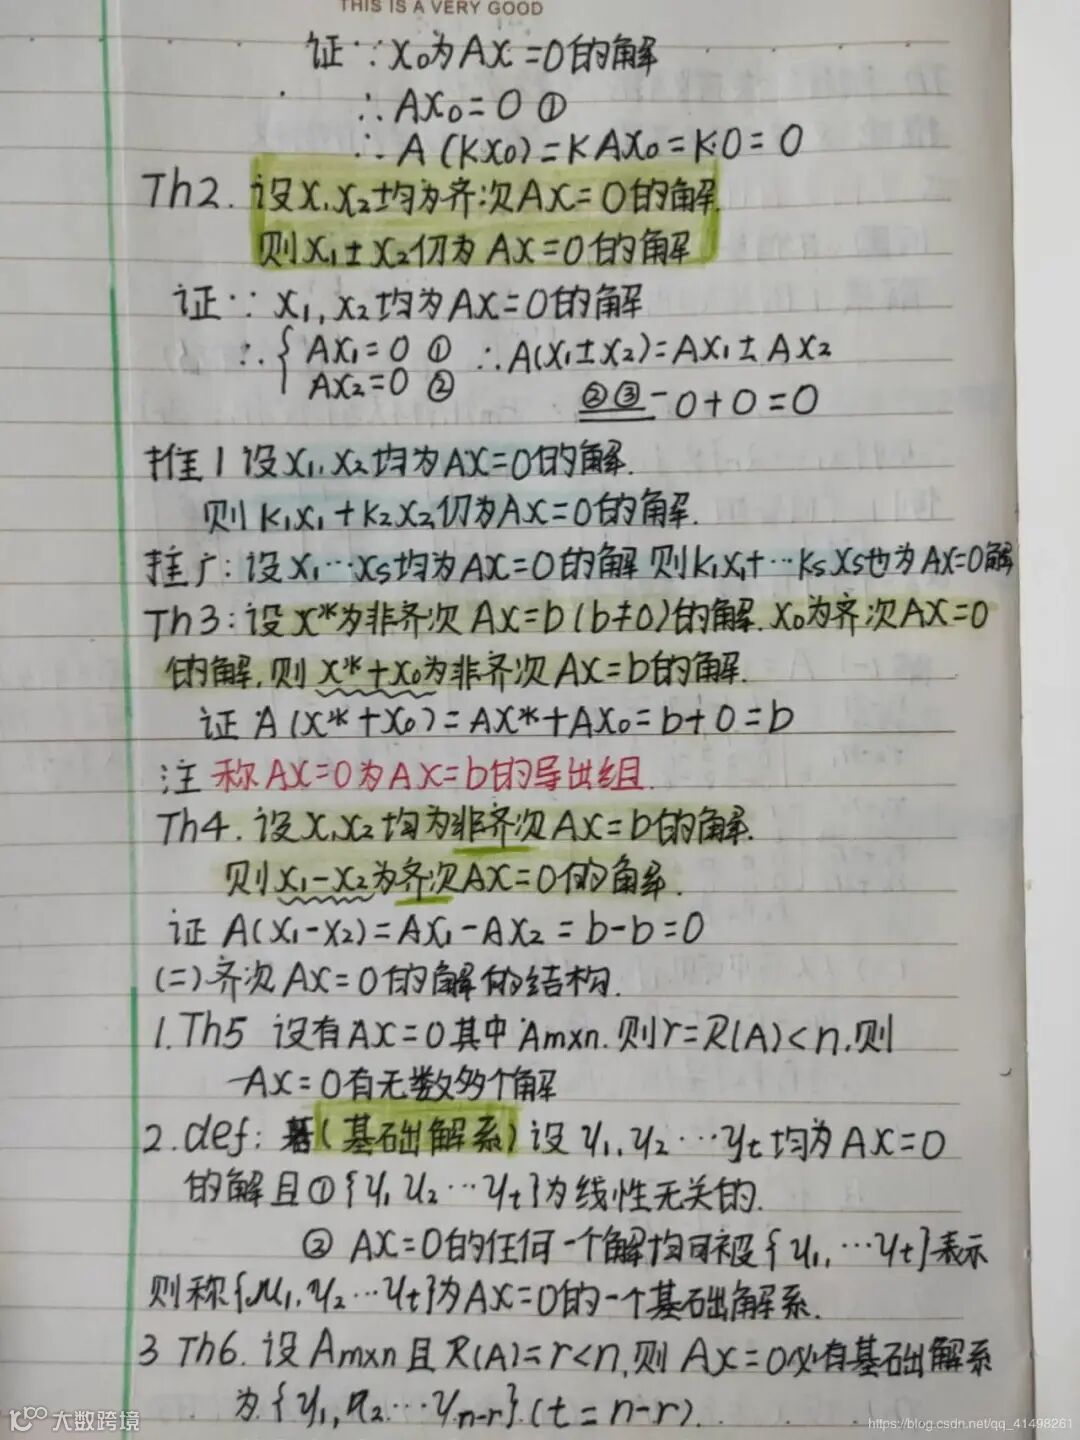 THIS IS A VERY GOOD
证 ∵ x₀为AX=0的解
∴ AX₀=0 ①
∴ A(KX₀)=KAX₀=K·0=0
Th2. 设X₁X₂均为齐次AX=0的解.
则X₁±X₂仍为AX=0的解
证 ∵ X₁, X₂均为AX=0的解
∴ { AX₁=0 ① ∴A(X₁±X₂)=AX₁±AX₂
AX₂=0 ② ②③ 0+0=0
推1 设X₁,X₂均为AX=0的解.
则K₁X₁+K₂X₂仍为AX=0的解.
推广: 设X₁…Xs均为AX=0的解 则K₁X₁+…KsXs也为AX=0解
Th3: 设X*为非齐次AX=b(b≠0)的解. X₀为齐次AX=0
的解, 则X*+X₀为非齐次AX=b的解.
证 A(X*+X₀)=AX*+AX₀=b+0=b
注 称AX=0为AX=b的导出组.
Th4. 设X₁X₂均为非齐次AX=b的解.
则X₁-X₂为齐次AX=0的解.
证 A(X₁-X₂)=AX₁-AX₂=b-b=0
(二)齐次AX=0的解的结构.
1.Th5 设有AX=0其中Amxn. 则r=R(A)<n, 则
AX=0有无数多个解
2.def: (基础解系) 设y₁,y₂…yt均为AX=0
的解且①{y₁ y₂…yt}为线性无关的.
② AX=0的任何一个解均可被{y₁,…yt}表示
则称{y₁,y₂…yt}为AX=0的一个基础解系.
3 Th6. 设Amxn且R(A)=r<n,则AX=0必有基础解系
为{y₁,y₂…yn-r}.(t=n-r).
大数跨境
https://blog.csdn.net/qq_41498261